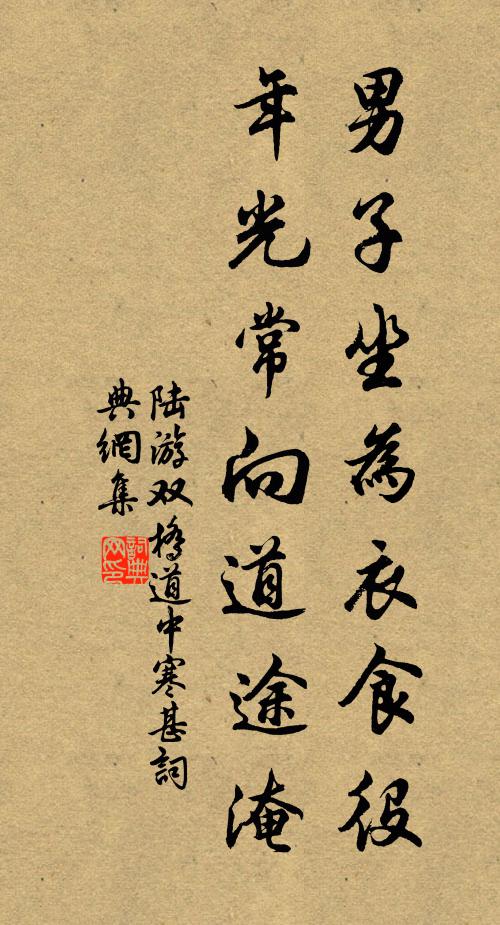 男子坐為衣食役
年光常向道途淹
陆游双橋道中寒甚詞
典網集
詞典网印